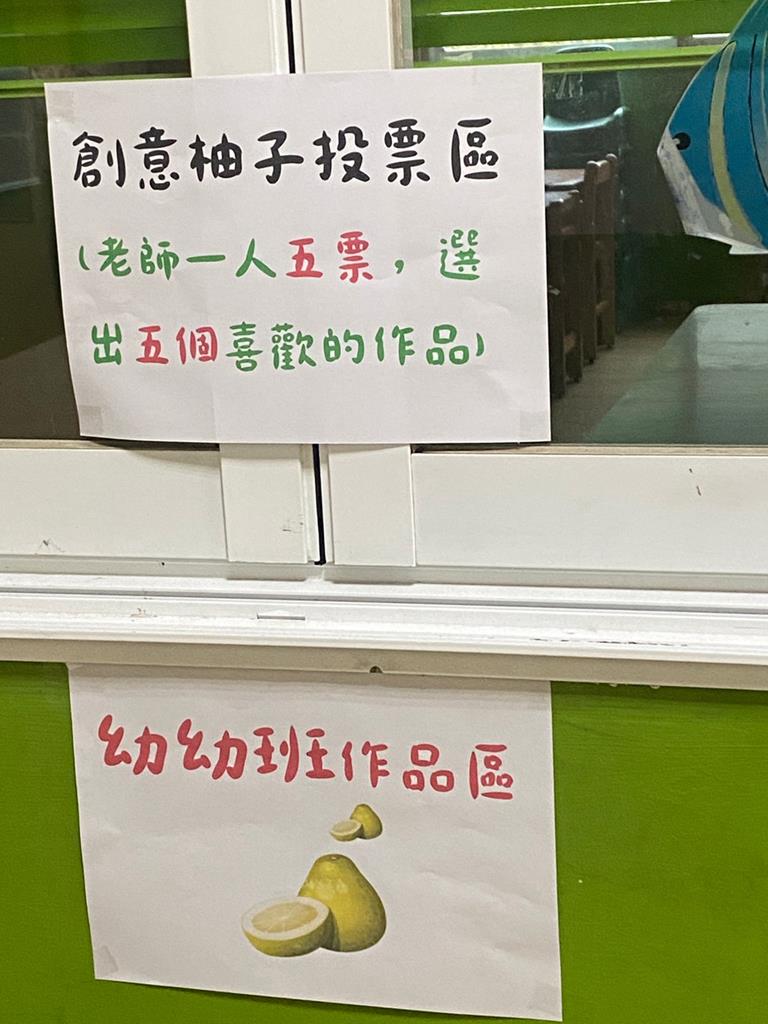 創意柚子投票區
(老師一人五票，選
出五個喜歡的作品)
幼幼班作品區